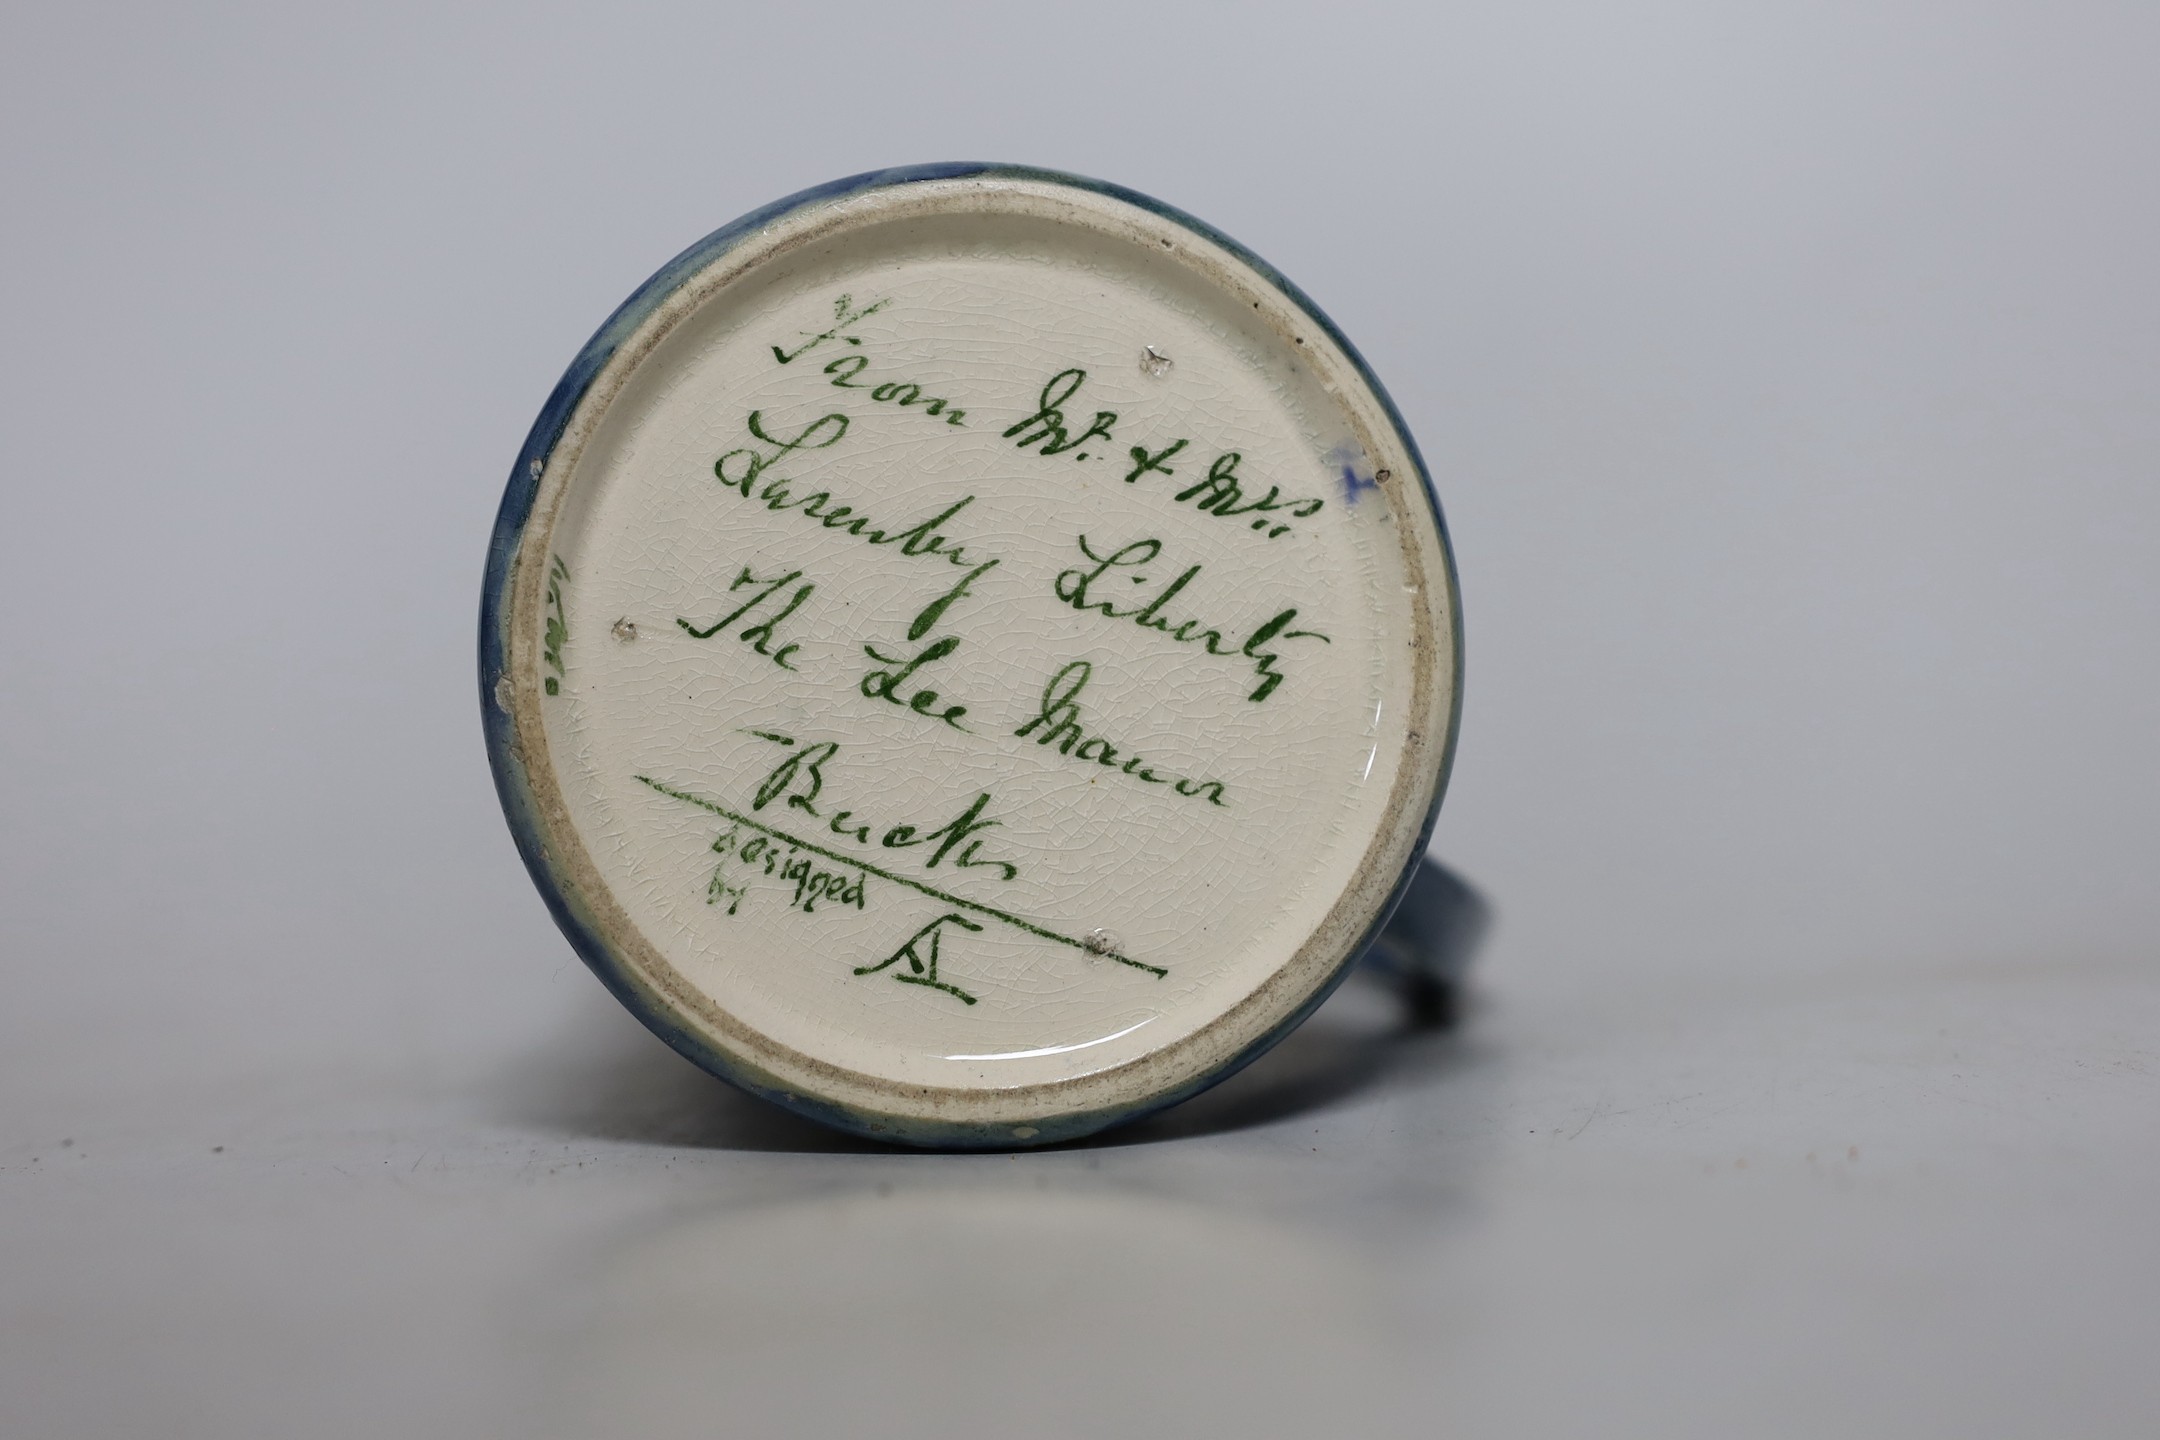 From Mr. & Mrs.
Lasenby Liberty
The Lee Manor
Bucks
designed
by